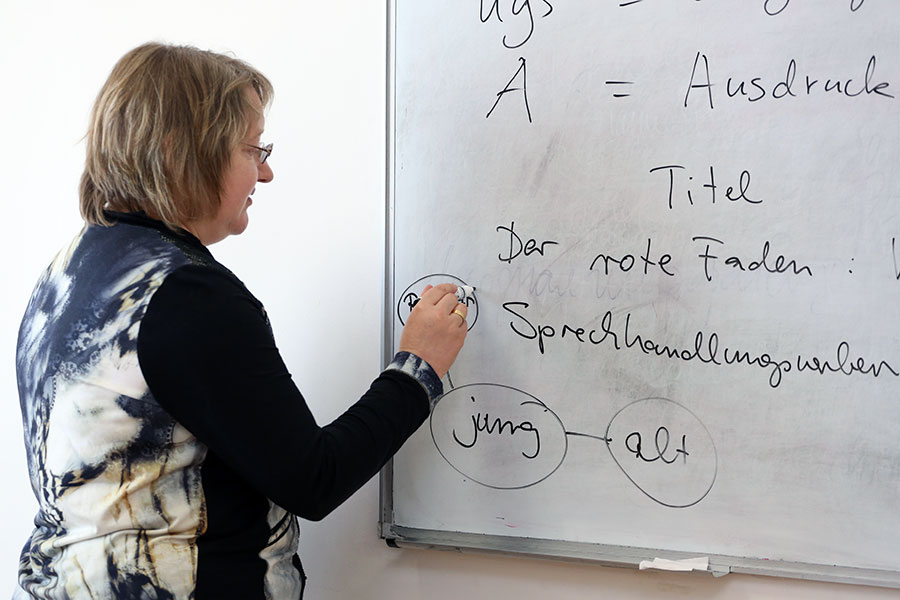 A = Ausdruck
Titel
Der rote Faden :
Sprechhandlungsverben
jung
alt